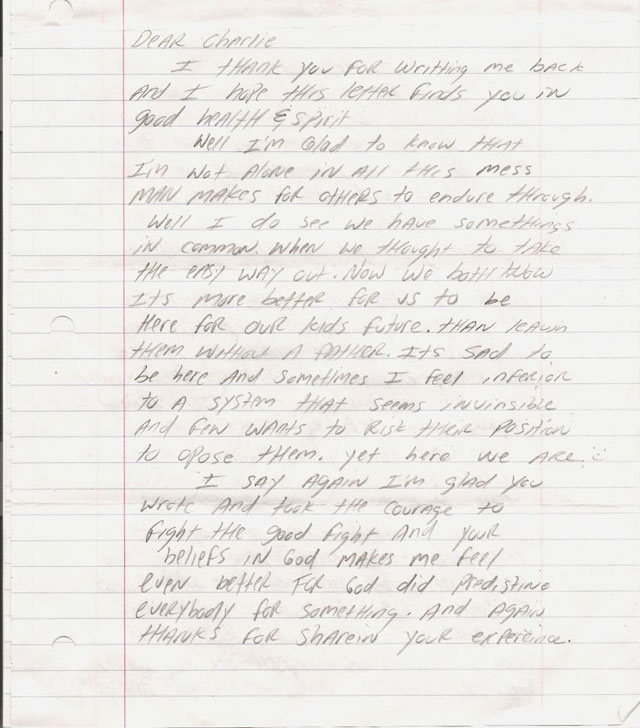 Dear Charlie
I thank you for writting me back
And I hope this letter finds you in
good health & spirit
Well I'm Glad to know that
I'm Not Alone in All this mess
MAN MAKES for others to endure through.
Well I do see we have somethings
in common. When we thought to take
the easy way out. Now we both know
Its more better for us to be
Here for our kids future. than leavin
them without A father. Its sad to
be here And sometimes I feel inferior
to A system that seems invinsible
And few wants to Risk their position
to opose them. yet here we Are.
I say Again I'm glad you
wrote And took the courage to
fight the good fight And your
beliefs in God makes me feel
even better For God did predistine
everybody for something. And Again
thanks for sharein your experience.